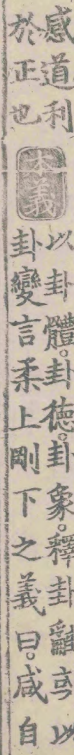 感道利
於正也
本義
以卦體。卦德。卦象。釋卦辭或以
卦變言柔上剛下之義曰。咸自